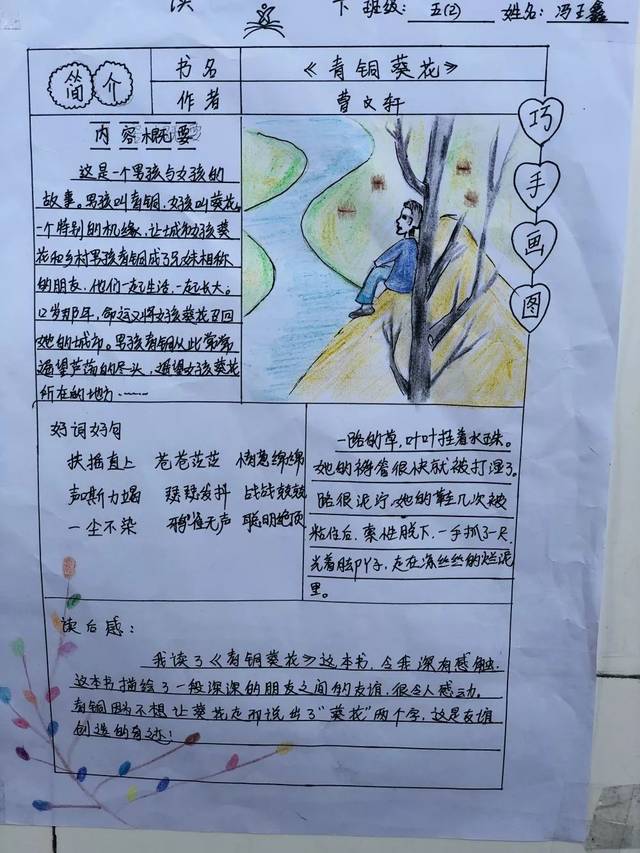 读
下 班级: 五(2) 姓名: 冯王鑫
简介
书名 《青铜葵花》
作者 曹文轩
巧手画图
内容概要
这是一个男孩与女孩的
故事。男孩叫青铜,女孩叫葵花。
一个特别的机缘,让城市女孩葵
花和乡村男孩青铜成了兄妹相称
的朋友,他们一起生活,一起长大。
12岁那年,命运又将女孩葵花召回
她的城市。男孩青铜从此常常
遥望芦荡的尽头,遥望女孩葵花
所在的地方……
好词好句
扶摇直上 苍苍茫茫 情意绵绵
声嘶力竭 瑟瑟发抖 战战兢兢
一尘不染 鸦雀无声 聪明绝顶
一路的草,叶叶挂着水珠。
她的裤管很快就被打湿了。
路很泥泞,她的鞋几次被
粘住后,索性脱下,一手抓了一只,
光着脚丫子,走在凉丝丝的烂泥
里。
读后感:
我读了《青铜葵花》这本书,令我深有感触,
这本书描绘了一段深深的朋友之间的友谊,很令人感动。
青铜因为不想让葵花走而说出了"葵花"两个字,这是友谊
创造的奇迹!